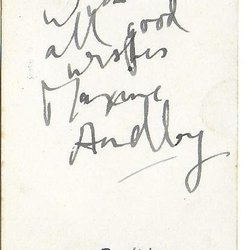 With
all good
wishes
Maxine
Audley